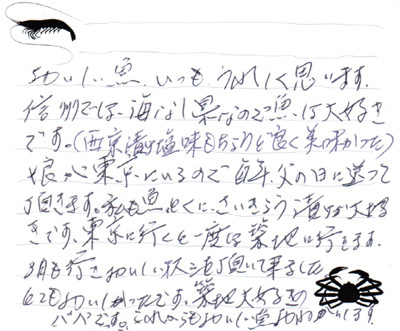 おいしい魚、いつもうれしく思います。
信州では、海なし県なので魚は大好き
です。(西京漬は塩味もちょうど良く美味かった)
娘が東京にいるので毎年、父の日に送って
頂きます。私も魚とくにさいきょう漬が大好
きです。東京に行くと一度は築地に行きます。
3月も行きおいしいお寿司を頂いて来ました
とてもおいしかったです。築地大好きの
ババです。これからもおいしい魚お願いします